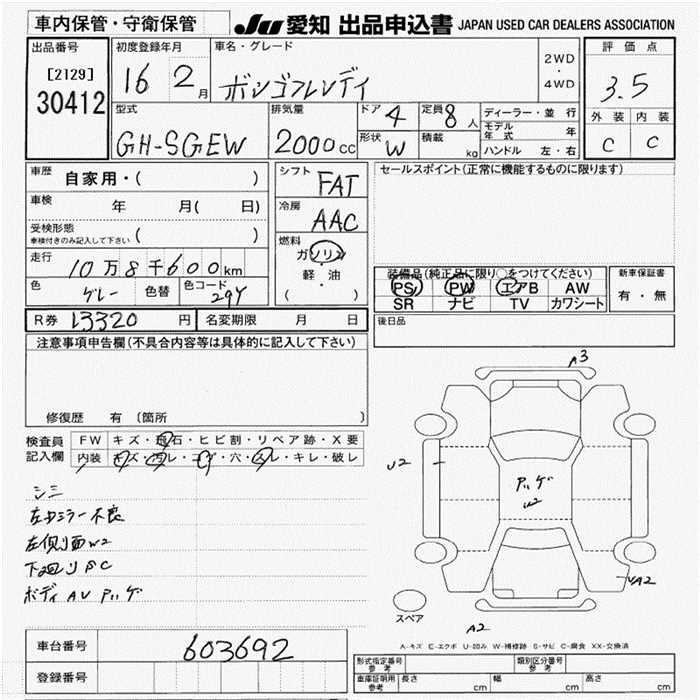 車内保管・守衛保管
JU 愛知 出品申込書 JAPAN USED CAR DEALERS ASSOCIATION
出品番号
[2129]
30412
初度登録年月
16 2月
車名・グレード
ボンゴフレンディ
2WD
・
4WD
評価点
3.5
外装 内装
C C
型式
GH-SGEW
排気量
2000cc
ドア 4
形状 W
定員 8人
積載 kg
ディーラー・並行
モデル年式 年
ハンドル 左・右
車歴 自家用・( )
車検 年 月( 日)
受検形態
車検付きのみ記入して下さい ( )
走行 10万8千600km
色 グレー 色替 色コード 29Y
シフト
FAT
冷房
AAC
燃料
ガソリン
軽・油
( )
セールスポイント(正常に機能するものに限ります)
装備品(純正品に限り○をつけてください)
PS PW エアB AW
SR ナビ TV カワシート
新車保証書
有・無
R券 13320円 名変期限 月 日
後日品
注意事項申告欄(不具合内容等は具体的に記入して下さい)
修復歴 有〔箇所 〕
検査員
記入欄
FW キズ・飛石・ヒビ割・リペア跡・X要
内装 キズ・汚レ・コゲ・穴・スレ・キレ・破レ
シミ
左ドミラー不良
左側面W2
下廻りSC
ボディAU
A3
U2
U2
A2
スペア
A2
A-キズ E-エクボ U-凹み W-補修跡 S-サビ C-腐食 XX-交換済
車台番号 603692
登録番号
形式指定番号
参考
類別区分番号
参考
車庫証明用
参考
長さ cm 幅 cm 高さ cm